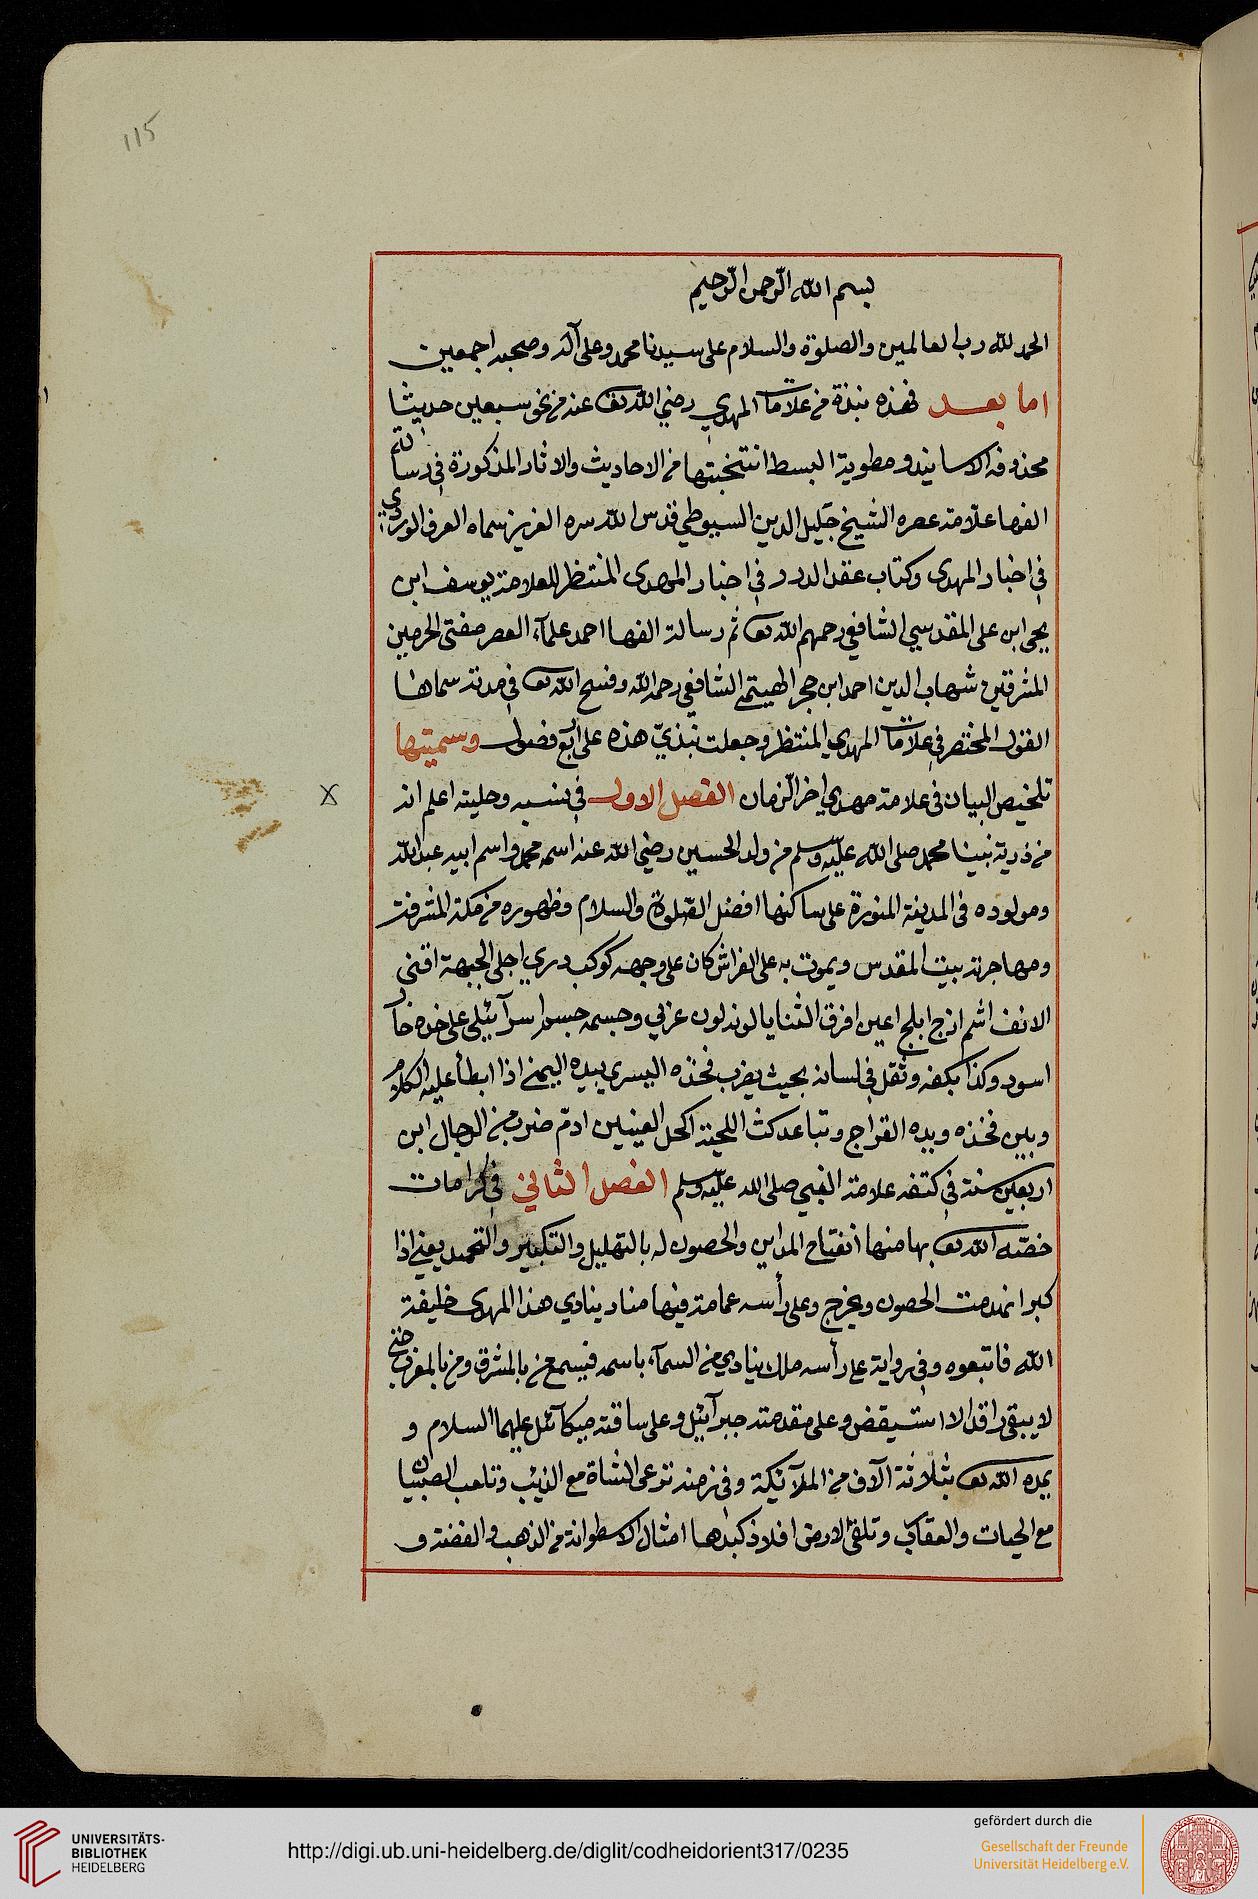 115
بسم الله الرّحمن الرّحيم
الحمد لله رب العالمين والصلوة والسلام على سيدنا محمد وعلى آله وصحبه اجمعين
اما بعد فهذه نبذة من علامات المهدي رضي الله تعالى عنه من نحو سبعين حديثا
محذوفه الاسانيد ومطوية البسط انتخبتها من الاحاديث والاثار المذكورة في رسالة
الفها علّامة عصره الشيخ جليل الدين السيوطي قدس الله سره العزيز سماه العرف الوردي
في اخبار المهدى وكتاب عقد الدرر في اخبار المهدى المنتظر للعلامة يوسف ابن
يحيى ابن على المقدسي الشافعي رحمهم الله تعالى ثم رسالة الفها احمد علمآء العصر مفتى الحرمين
المشرفتين شهاب الدين احمد ابن حجر الهيتمي الشافعي رحمه الله وفسح الله تعالى في مدته سماها
القول المختصر في علامات المهدي المنتظر وجعلت نبذتي هذه على اربع فصول وسميتها
تلخيص البيان في علامة مهدي اخر الزمان الفصل الاول في نسبه وحليته اعلم انه
من ذرية نبينا محمد صلى الله عليه وسلم من ولد الحسين رضي الله عنه اسمه محمد واسم ابيه عبد الله
ومولوده في المدينة المنورة على ساكنها افضل الصلوة والسلام وظهوره من مكة المشرفة
ومهاجرته بيت المقدس ويموت به على الفراش كان على وجهه كوكب دري اجلى الجبهة اقنى
الانف اشم ازج ابلج اعين افرق الثنايا لونه لون عربي وجسمه جسم اسرآئيلى على خده خال
اسود وكذا بكفه وثقل في لسانه بحيث يضرب فخذه اليسرى بيده اليمنى اذا ابطأ عليه الكلام
وبين فخذه ويده القراج وتباعد كث اللحية اكحل العينين ادم ضرب من الرجال ابن
اربعين سنة في كتفه علامة النبي صلى الله عليه وسلم الفصل الثاني في كرامات
خصّه الله تعالى بها منها انفتاح المداين والحصون له بالتهليل والتكبير والتحميد يعني اذا
كبر انهدمت الحصون ويخرج وعلى رأسه عمامة فيها مناد ينادي هذا المهدى خليفة
الله فاتبعوه وفي رواية على رأسه ملك ينادي من السمآء باسمه فيسمع من بالمشرق ومن بالمغرب حتى
لا يبقى راقد الا استيقض وعلى مقدمته جبرآئيل وعلى ساقته ميكآئل عليهما السلام و
يمده الله تعالى بثلاثة آلاف من الملآئكة وفي زمنه ترعى الشاة مع الذئب وتلعب الصبيان
مع الحيات والعقارب وتلقى الارض افلاذ كبدها امثال الاسطوانة من الذهب والفضة و
UNIVERSITÄTS-
BIBLIOTHEK
HEIDELBERG
http://digi.ub.uni-heidelberg.de/diglit/codheidorient317/0235
gefördert durch die
Gesellschaft der Freunde
Universität Heidelberg e.V.